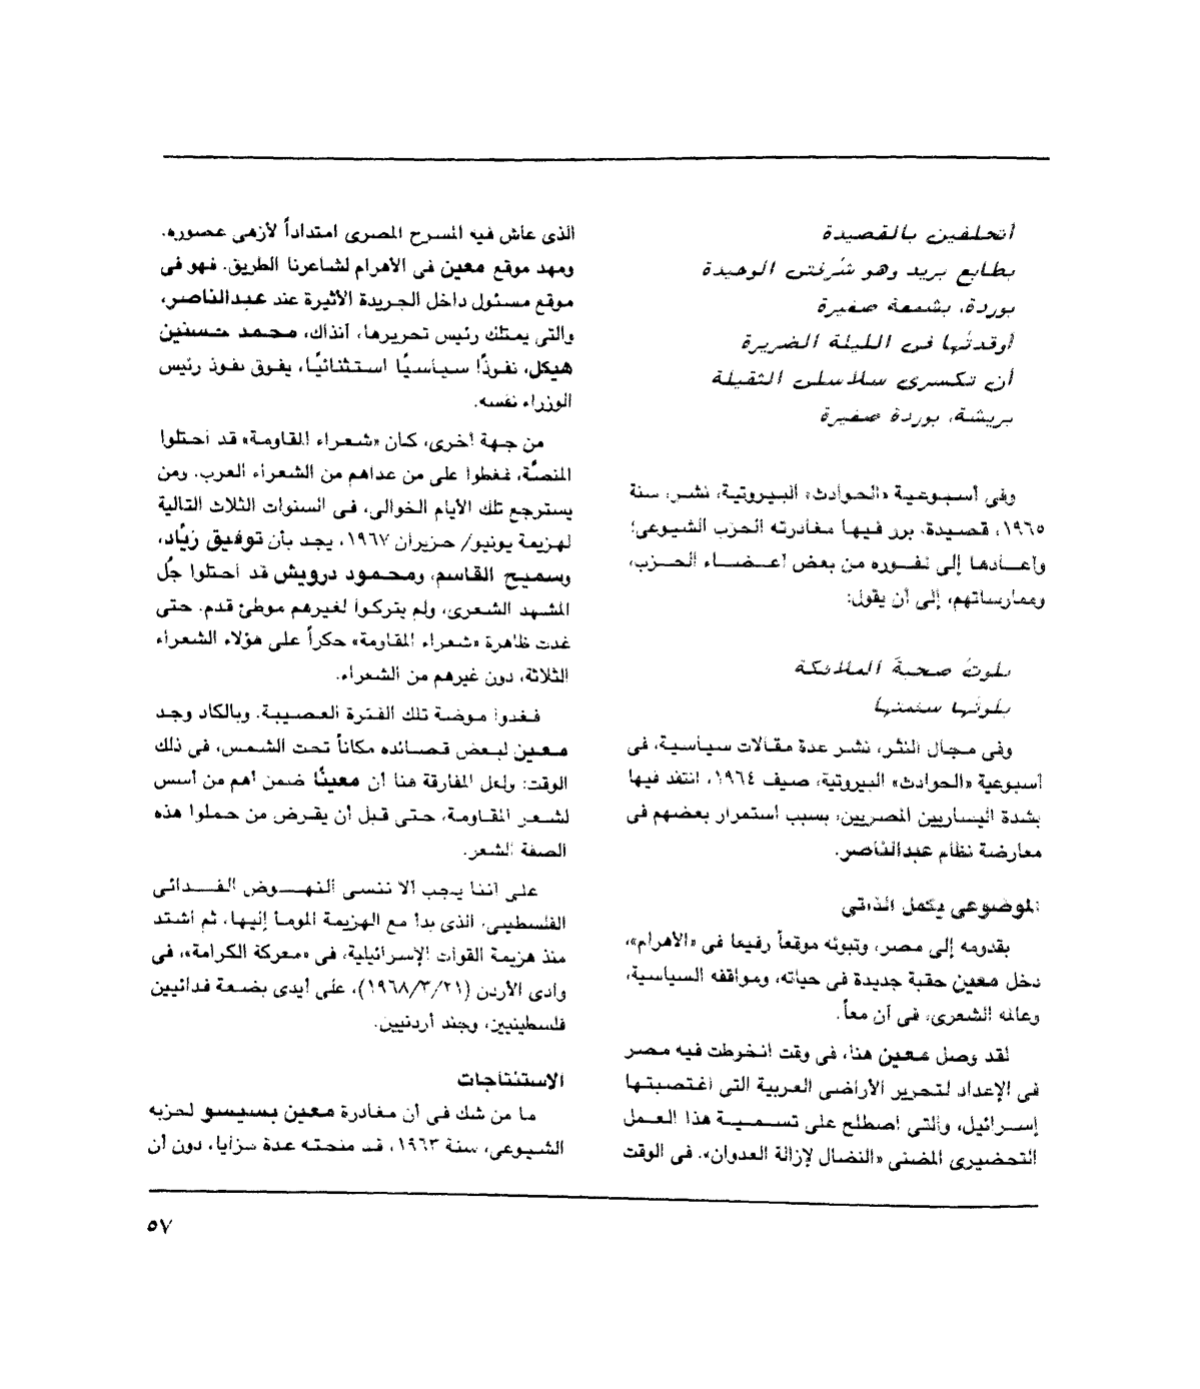 أتحلفين بالقصيدة
بطابع بريد وهو شُرفتى الوحيدة
بوردة، بشمعة صغيرة
أوقدتُها فى الليلة الضريرة
أن تكسرى سلاسلى الثقيلة
بريشة، بوردة صغيرة
وفى أسبوعية «الحوادث» البيروتية، نشر، سنة
١٩٦٥، قصيدة، برر فيها مغادرته الحزب الشيوعى؛
وأعادها إلى نفوره من بعض أعضاء الحزب،
وممارساتهم، إلى أن يقول:
بلوتُ صحبةَ الملائكة
بلوتُها سئمتها
وفى مجال النثر، نشر عدة مقالات سياسية، فى
أسبوعية «الحوادث» البيروتية، صيف ١٩٦٤، انتقد فيها
بشدة اليساريين المصريين، بسبب استمرار بعضهم فى
معارضة نظام عبدالناصر.
الموضوعى يكمل الذاتى
بقدومه إلى مصر، وتبوئه موقعاً رفيعا فى «الأهرام»،
دخل معين حقبة جديدة فى حياته، ومواقفه السياسية،
وعالمه الشعرى، فى آن معاً.
لقد وصل معين هنا، فى وقت انخرطت فيه مصر
فى الإعداد لتحرير الأراضى العربية التى اغتصبتها
إسرائيل، والتى اصطلح على تسمية هذا العمل
التحضيرى المضنى «النضال لإزالة العدوان». فى الوقت
الذى عاش فيه المسرح المصرى امتداداً لأزهى عصوره.
ومهد موقع معين فى الأهرام لشاعرنا الطريق. فهو فى
موقع مسئول داخل الجريدة الأثيرة عند عبدالناصر،
والتى يمتلك رئيس تحريرها، آنذاك، محمد حسنين
هيكل، نفوذًا سياسيًا استثنائيًا، يفوق نفوذ رئيس
الوزراء نفسه.
من جهة أخرى، كان «شعراء المقاومة» قد احتلوا
المنصّة، فغطوا على من عداهم من الشعراء العرب. ومن
يسترجع تلك الأيام الخوالى، فى السنوات الثلاث التالية
لهزيمة يونيو/ حزيران ١٩٦٧، يجد بأن توفيق زيّاد،
وسميح القاسم، ومحمود درويش قد احتلوا جُل
المشهد الشعرى، ولم يتركوا لغيرهم موطئ قدم. حتى
غدت ظاهرة «شعراء المقاومة» حكراً على هؤلاء الشعراء
الثلاثة، دون غيرهم من الشعراء.
فغدوا موضة تلك الفترة العصيبة. وبالكاد وجد
معين لبعض قصائده مكاناً تحت الشمس، فى ذلك
الوقت: ولعل المفارقة هنا أن معينًا ضمن أهم من أسس
لشعر المقاومة، حتى قبل أن يقرض من حملوا هذه
الصفة الشعر.
على أننا يجب ألا ننسى النهوض الفدائى
الفلسطينى، الذى بدأ مع الهزيمة المومأ إليها، ثم اشتد
منذ هزيمة القوات الإسرائيلية، فى «معركة الكرامة»، فى
وادى الأردن (١٩٦٨/٣/٢١)، على أيدى بضعة فدائيين
فلسطينيين، وجند أردنيين.
الاستنتاجات
ما من شك فى أن مغادرة معين بسيسو لحزبه
الشيوعى، سنة ١٩٦٣، قد منحته عدة مزايا، دون أن
٥٧